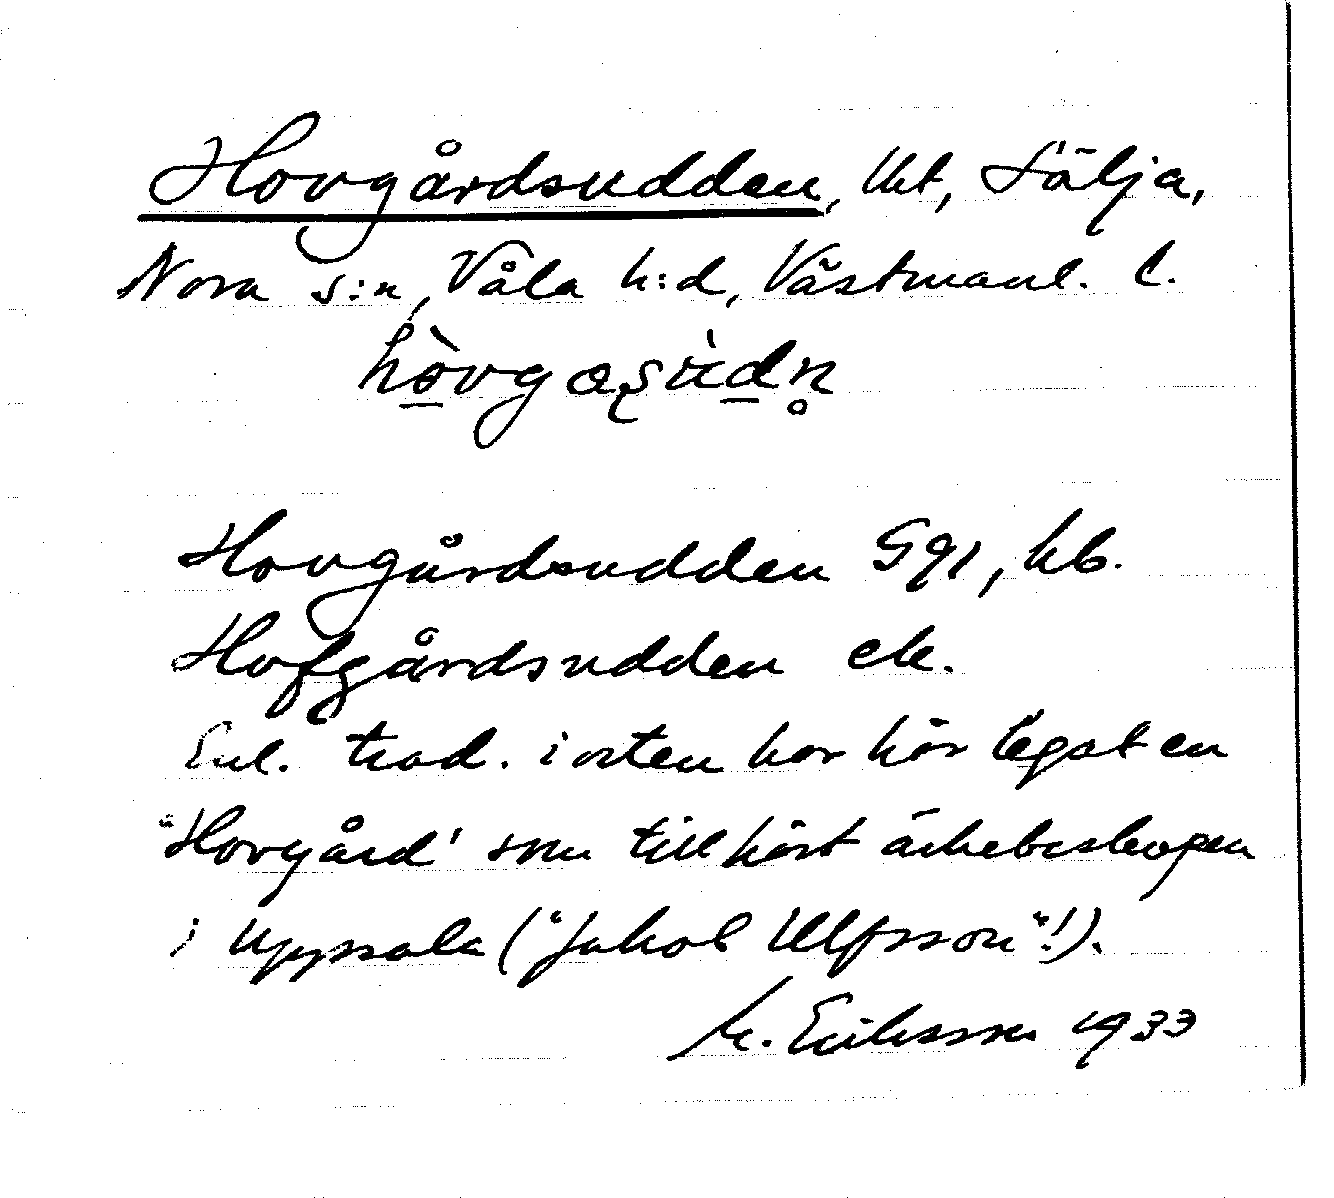 Hovgårdsudden, Utt, Sälja,
Nora s:n, Våla h:d, Västmanl. l.
Hovgårdsudden G91, kb.
Hofgårdsudden ek.
Enl. trad. i orten har här legat en
"Hovgård' som tillhört ärkebiskopen
i Uppsala ("Jakob Ulfsson"!).
M. Eriksson 1933